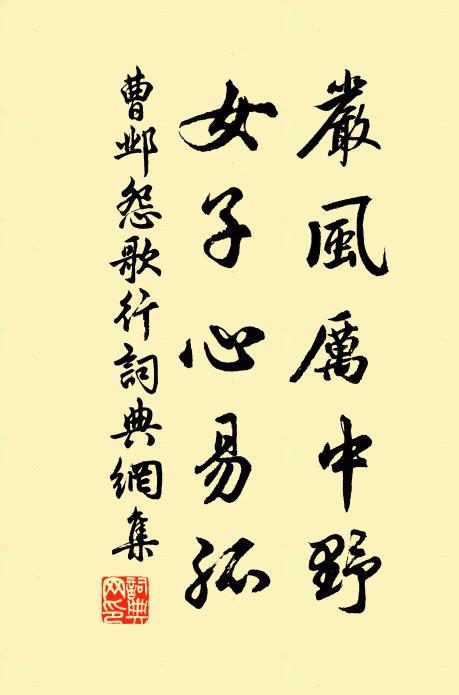 嚴風厲中野
女子心易孤
曹邺怨歌行詞典網集
詞典